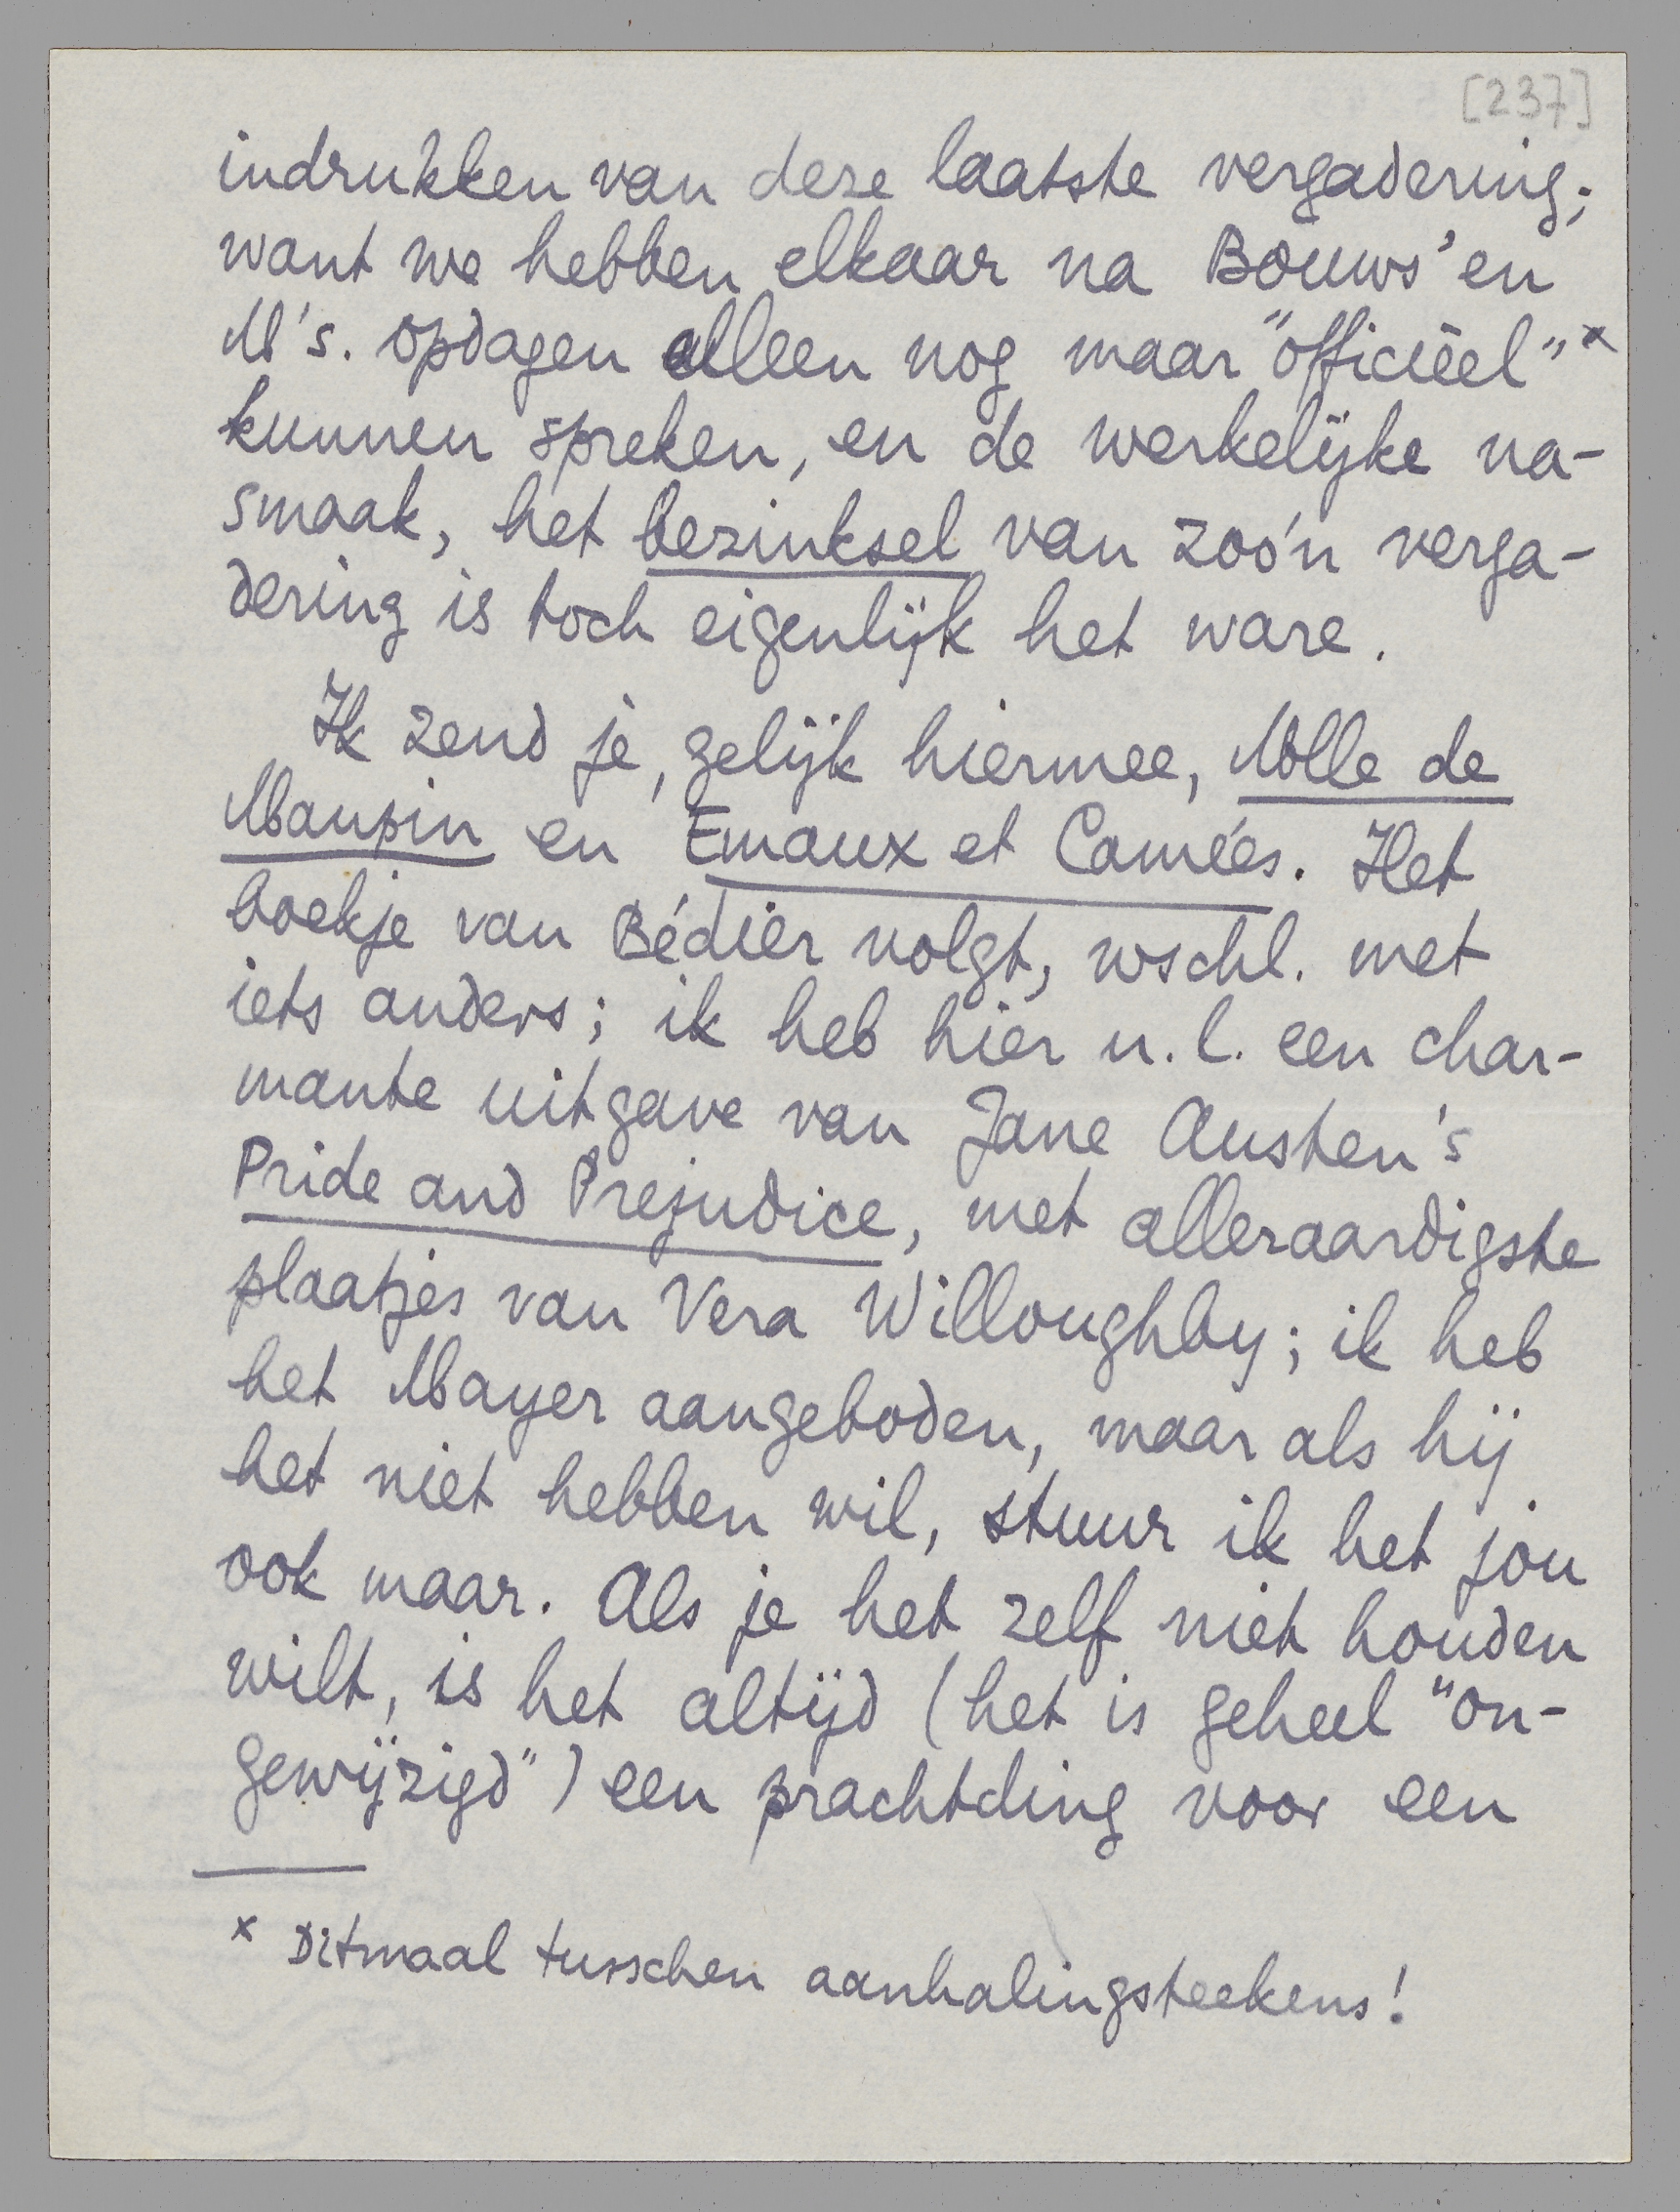 [237]
indrukken van deze laatste vergadering;
want we hebben elkaar na Bouws' en
M's. opdagen alleen nog maar "officiëel" x
kunnen spreken, en de werkelijke na-
smaak, het bezinksel van zoo'n verga-
dering is toch eigenlijk het ware.
Ik zend je, gelijk hiermee, Mlle de
Maupin en Emaux et Camées. Het
boekje van Bédier volgt, wschl. met
iets anders; ik heb hier n.l. een char-
mante uitgave van Jane Austen's
Pride and Prejudice, met alleraardigste
plaatjes van Vera Willoughby; ik heb
het Mayer aangeboden, maar als hij
het niet hebben wil, stuur ik het jou
ook maar. Als je het zelf niet houden
wilt, is het altijd (het is geheel "on-
gewijzigd") een prachtding voor een
x Ditmaal tusschen aanhalingsteekens!